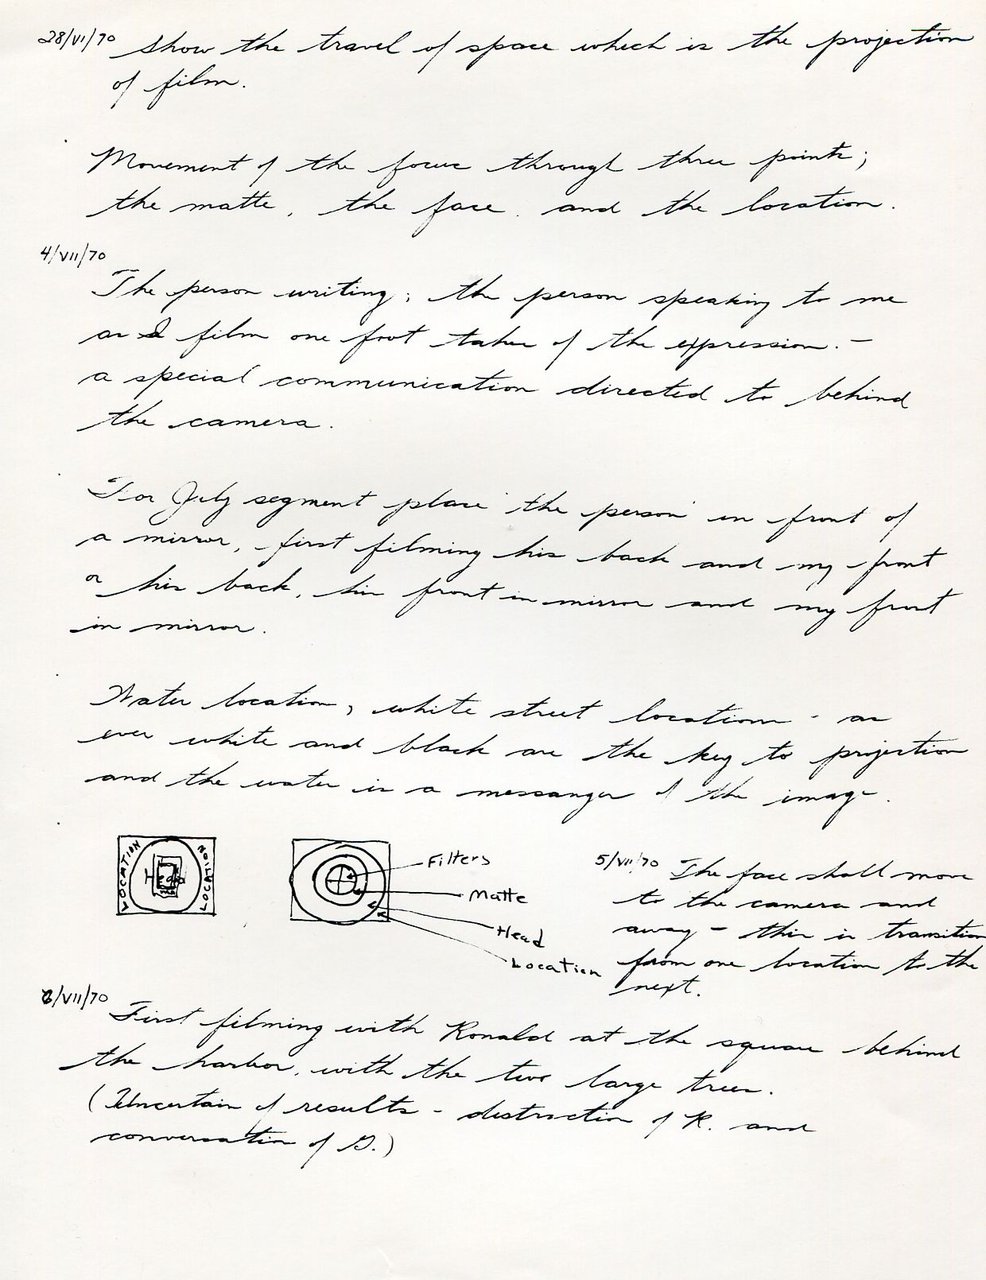 28/VI/70 Show the travel of space which is the projection
of film.
Movement of the focus through three points;
the matte, the face, and the location.
4/VII/70
The person writing; the person speaking to me
as I film one foot takes of the expression. —
a special communication directed to behind
the camera.
For July segment place the person in front of
a mirror, first filming his back and my front
or his back, his front in mirror and my front
in mirror.
Water location, white street locations - as
ever white and black are the key to projection
and the water is a messanger of the image.
LOCATION
Head
LOCATION
Filters
Matte
Head
Location
5/VII/70 The face shall move
to the camera and
away - this is transition
from one location to the
next.
6/VII/70 First filming with Ronald at the square behind
the harbor, with the two large trees.
(Uncertain of results - distraction of R. and
conversation of G.)